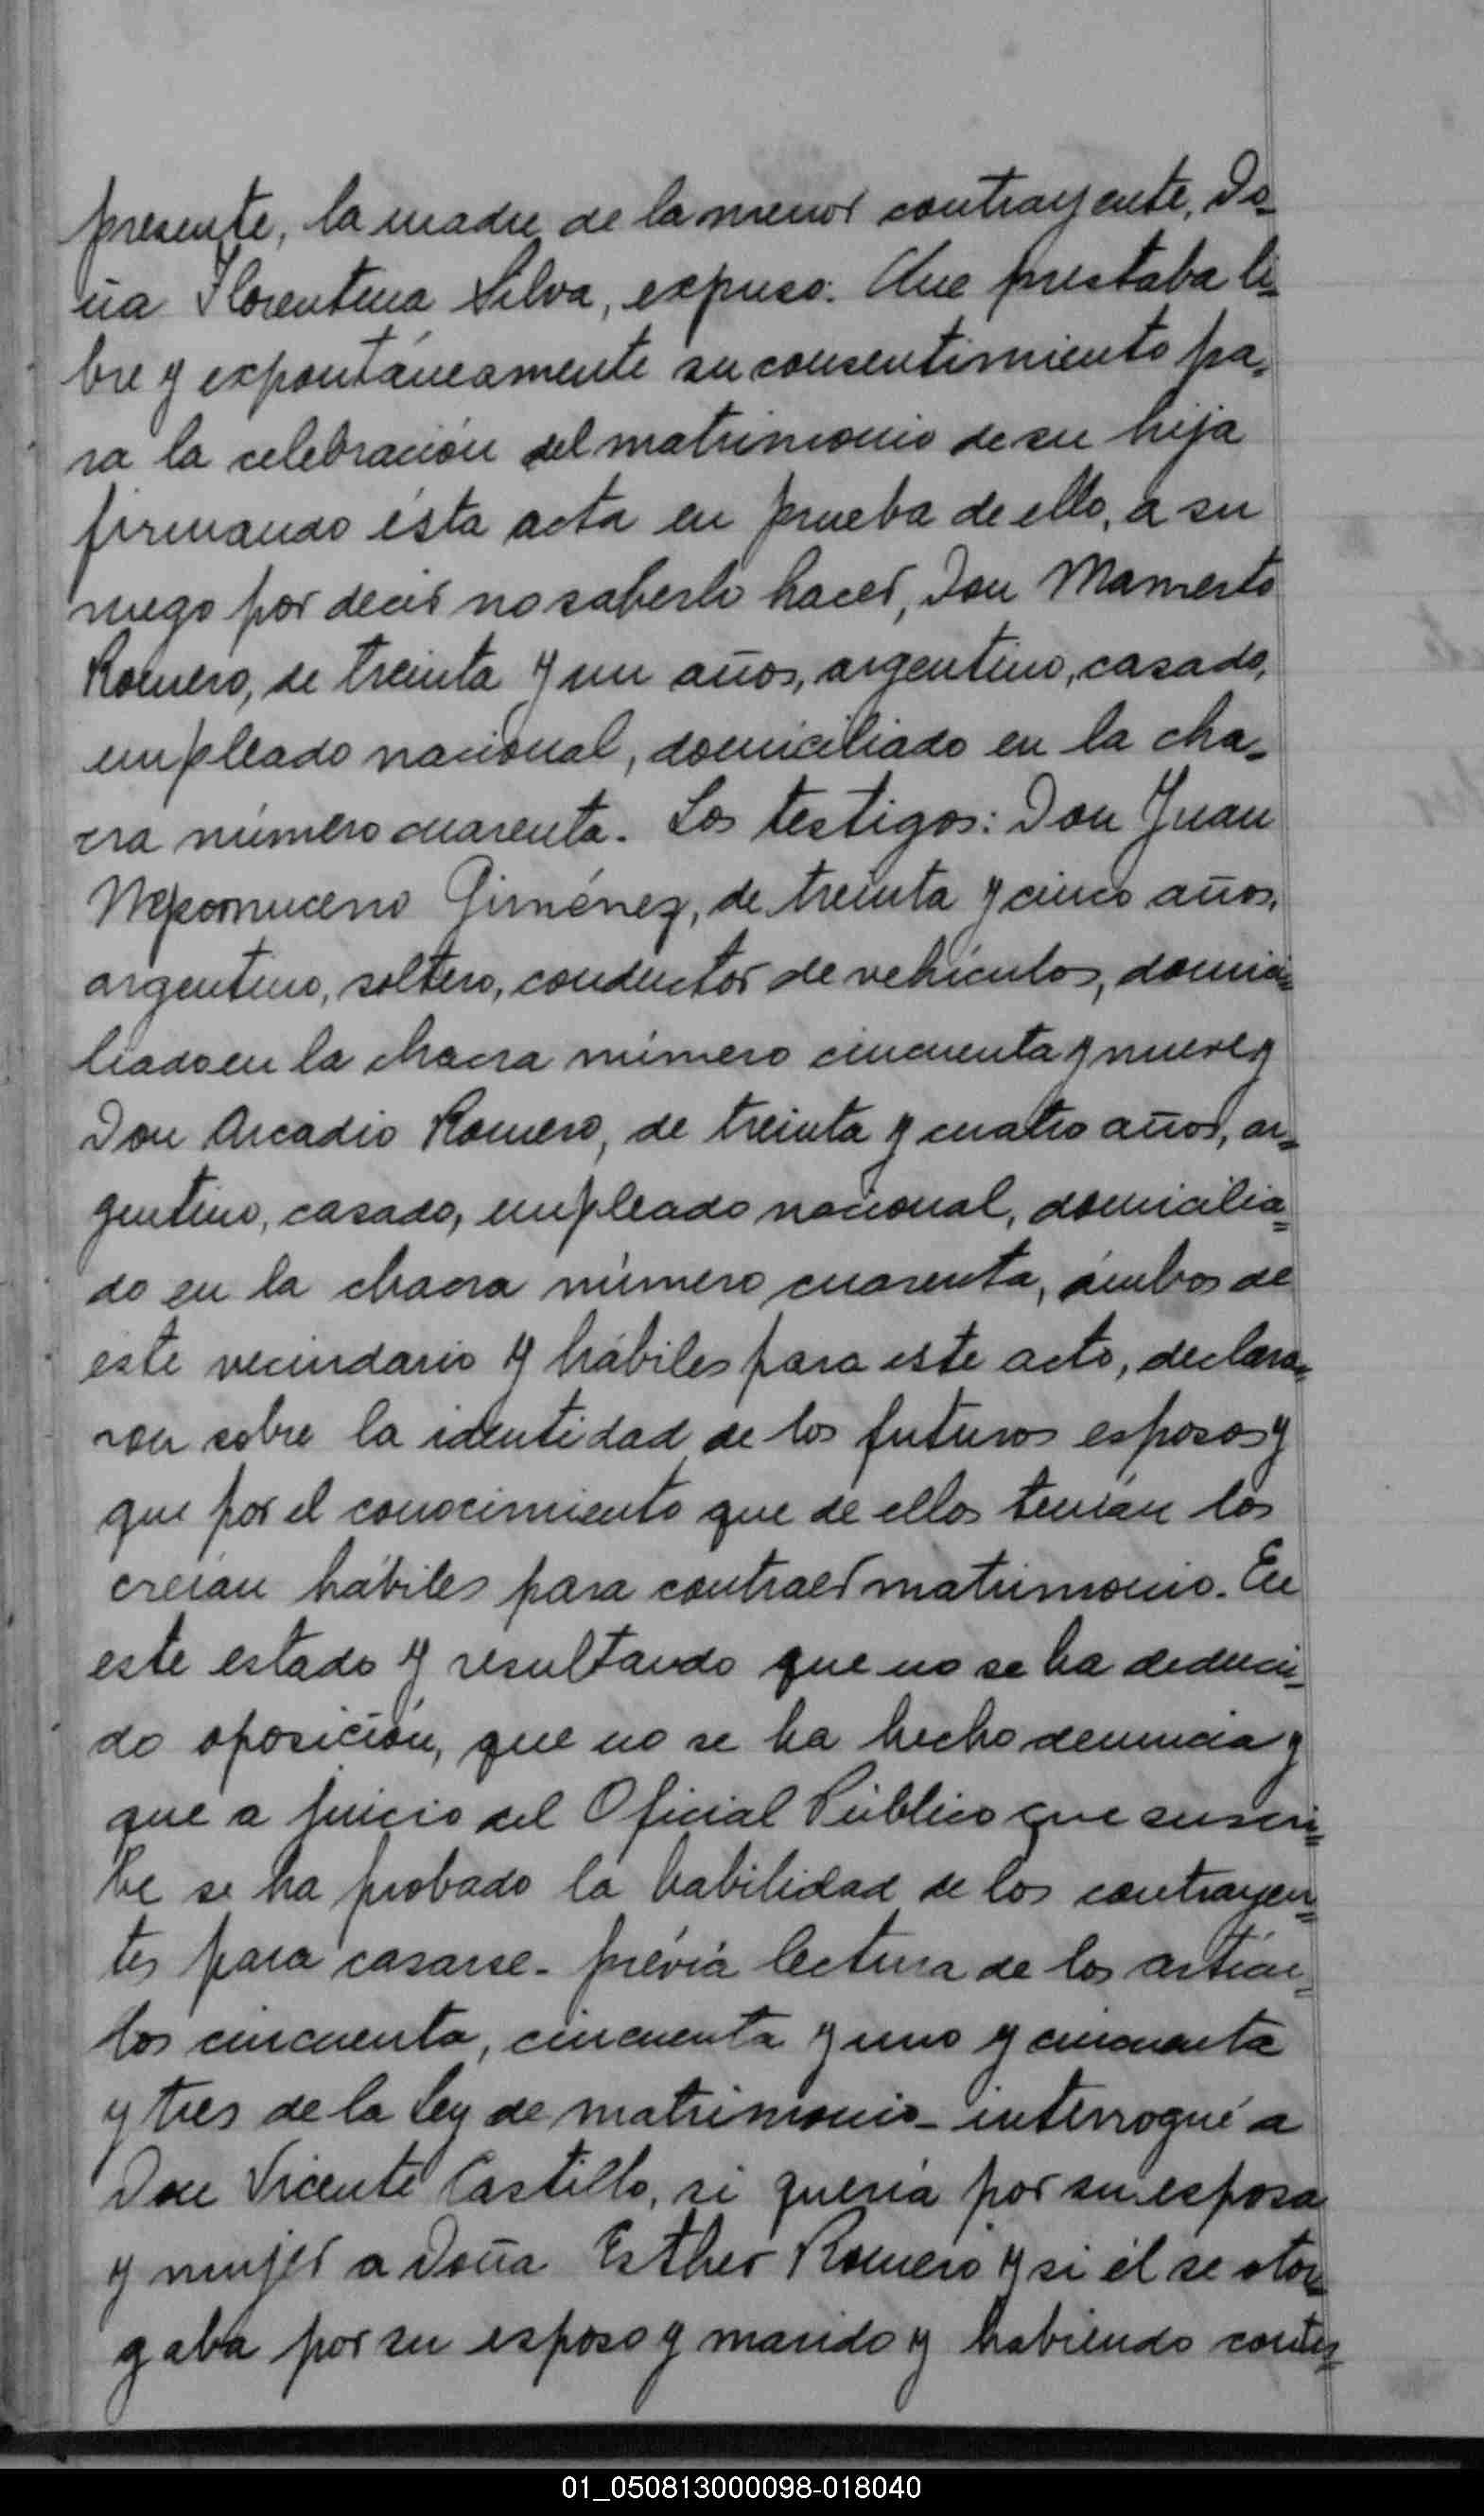 presente, la madre de la menor contrayente, Do-
ña Florentina Silva, expuso: Que prestaba li-
bre y expontáneamente su consentimiento pa-
ra la celebración del matrimonio de su hija
firmando ésta acta en prueba de ello, a su
ruego por decir no saberlo hacer, Don Mamerto
Romero, de treinta y un años, argentino, casado,
empleado nacional, domiciliado en la cha-
cra número cuarenta. Los testigos: Don Juan
Nepomuceno Giménez, de treinta y cinco años,
argentino, soltero, conductor de vehículos, domici-
liado en la chacra número cincuenta y nueve y
Don Arcadio Romero, de treinta y cuatro años, ar-
gentino, casado, empleado nacional, domicilia-
do en la chacra número cuarenta, ámbos de
éste vecindario y hábiles para este acto, declara-
ron sobre la identidad de los futuros esposos y
que por el conocimiento que de ellos tenían los
creían hábiles para contraer matrimonio. En
este estado y resultando que no se ha deduci-
do oposición, que no se ha hecho denuncia y
que a juicio del Oficial Público que suscri-
be se ha probado la habilidad de los contrayen-
tes para casarse - prévia lectura de los artícu-
los cincuenta, cincuenta y uno y cincuenta
y tres de la Ley de matrimonio - interrogué a
Don Vicente Castillo, si quería por su esposa
y mujer a Doña Esther Romero y si él se otor-
gaba por su esposo y marido y habiendo contes-
01_050813000098-018040